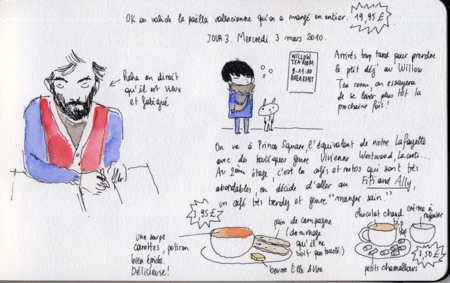 OK on valide la paëlla valencienne qu'on a mangé en entier. 19,95 £
JOUR 3. Mercredi 3 mars 2010.
Haha on dirait
qu'il est vieux
et fatigué
WILLOW
TEA ROOM
9-11:00
BREAKFAST
Arrivés trop tard pour prendre
le p'tit déj' au Willow
Tea room, on essayera
de se lever plus tôt la
prochaine fois!
On va à Prince Square, l'équivalent de notre Lafayette
avec des boutiques genre Vivienne Westwood, Lacoste...
Au 2ème étage, c'est les cafés et restos qui sont très
abordables, on décide d'aller au Fifi and Ally,
un café très trendy et genre "manger sain."
3,95 £
une soupe
carottes, potiron
bien épicée.
Délicieuse!
pain de campagne
(dommage
qu'il ne
soit pas toasté!)
beurre
chocolat chaud
crème à rajouter
top
3,50 £
petits chamallows